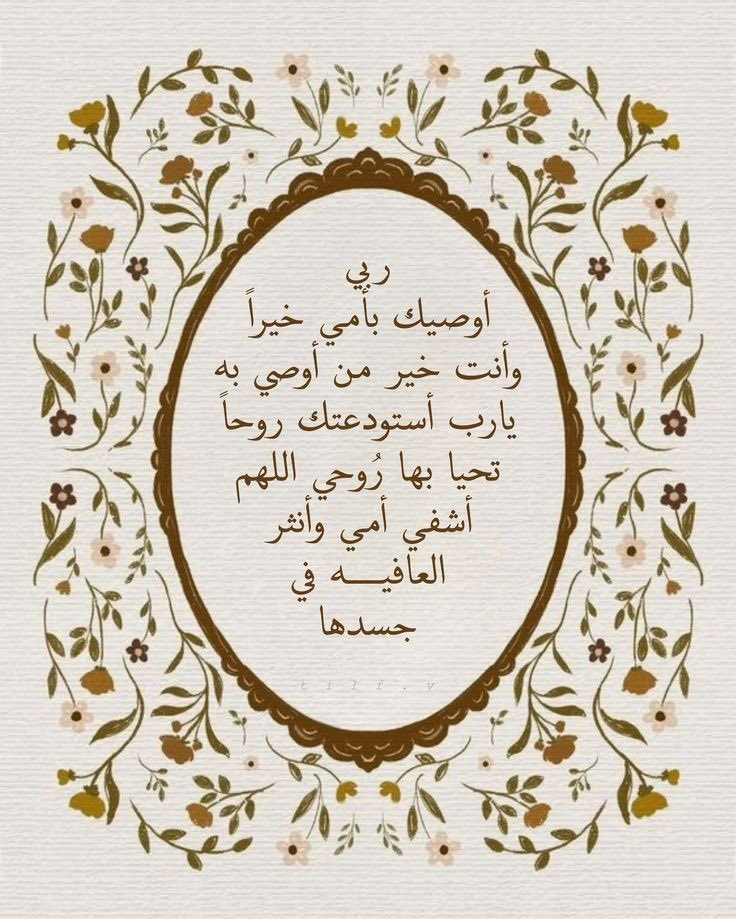 ربي
أوصيك بأمي خيراً
وأنت خير من أوصي به
يارب أستودعتك روحاً
تحيا بها رُوحي اللهم
أشفي أمي وأنثر
العافيـــه في
جسدها
t i l f . v